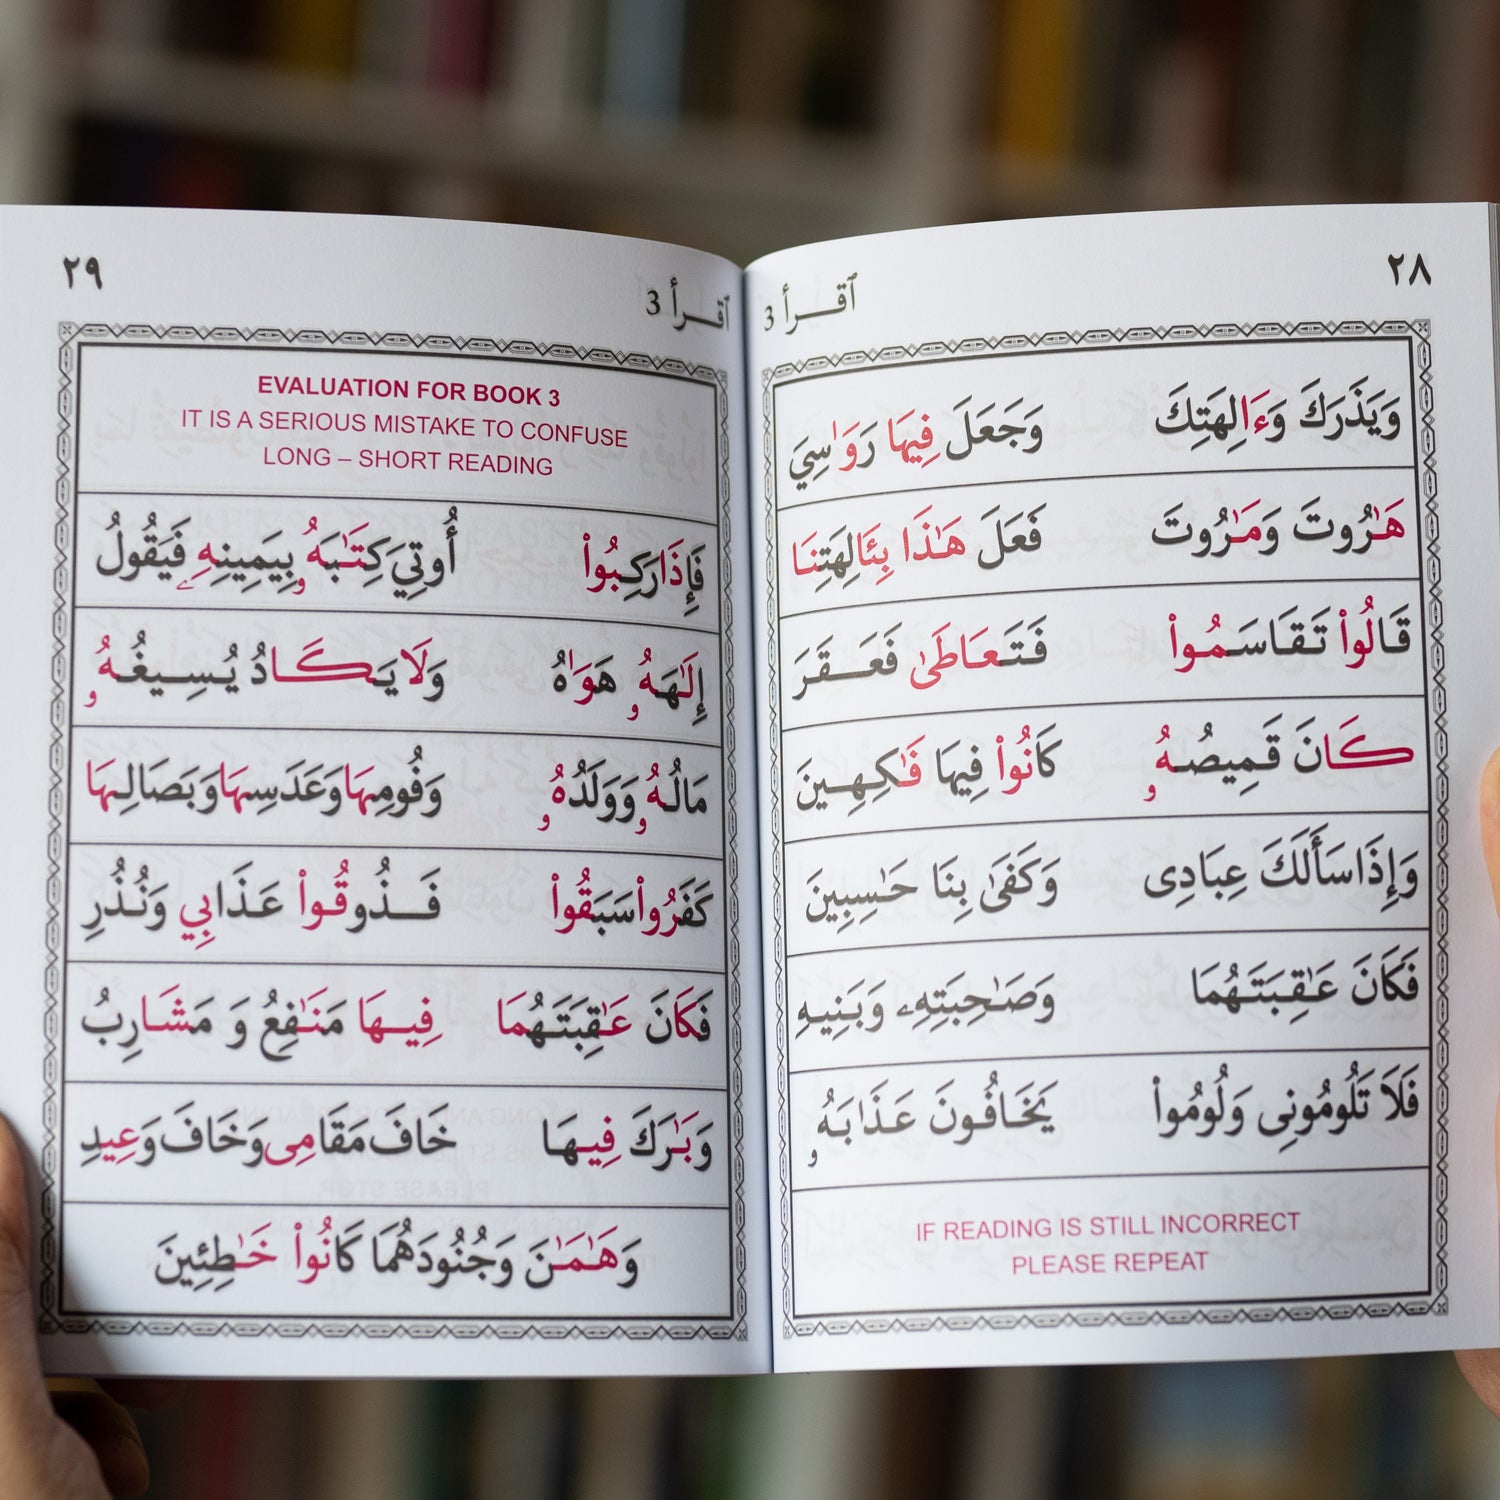 ٢٨
ٱقـــرأ 3
وَيَذَرَكَ وَءَالِهَتِكَ وَجَعَلَ فِيهَا رَوَٰسِيَ
هَـٰرُوتَ وَمَـٰرُوتَ فَعَلَ هَـٰذَا بِـَٔالِهَتِنَا
قَالُوا۟ تَقَاسَـمُوا۟ فَتَـعَاطَىٰ فَعَـــقَرَ
كَانَ قَـمِيصُـهُۥ كَانُوا۟ فِيهَا فَـٰكِـهِـينَ
وَإِذَاسَأَلَكَ عِبَادِى وَكَفَىٰ بِنَا حَـٰسِبِينَ
فَكَانَ عَـٰقِـبَـتَـهُمَا وَصَـٰحِبَتِهِۦ وَبَنِيـهِ
فَلَا تَلُومُونِى وَلُومُوا۟ يَخَـافُـونَ عَـذَابَـهُۥ
IF READING IS STILL INCORRECT
PLEASE REPEAT
٢٩
ٱقـــرأ 3
EVALUATION FOR BOOK 3
IT IS A SERIOUS MISTAKE TO CONFUSE
LONG – SHORT READING
فَإِذَارَكِـبُوا۟ أُوتِيَ‌كِتَـٰبَهُۥ بِيَمِينِهِۦ فَيَقُولُ
إِلَـٰهَـهُۥ هَوَىٰهُ وَلَا يَـكَـادُ يُـسِـيغُـهُۥ
مَالُـهُۥ وَوَلَدُهُۥ وَفُومِـهَاوَعَدَسِـهَاوَبَصَالِـهَا
كَفَرُوا۟سَبَقُوا۟ فَـــذُوقُـوا۟ عَـذَابِي وَنُـذُرِ
فَكَانَ عَـٰقِبَتَـهُمَا فِيــهَا مَنَـٰفِعُ وَ مَـشَـارِبُ
وَبَـٰرَكَ فِيـهَا خَافَ‌مَقَامِى‌وَخَافَ‌وَعِيدِ
وَهَـٰمَـٰنَ وَجُنُودَهُمَا كَانُوا۟ خَـٰطِئِينَ